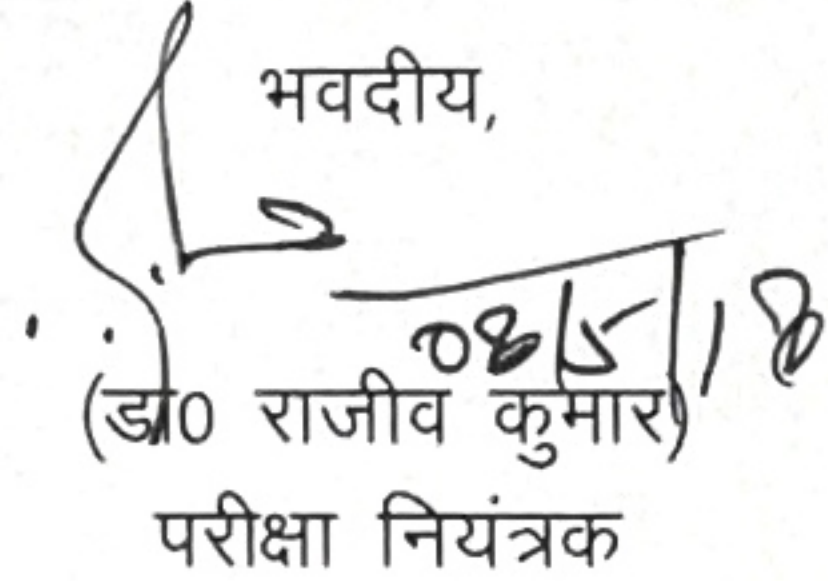 भवदीय,
08/5/18
(डा0 राजीव कुमार)
परीक्षा नियंत्रक